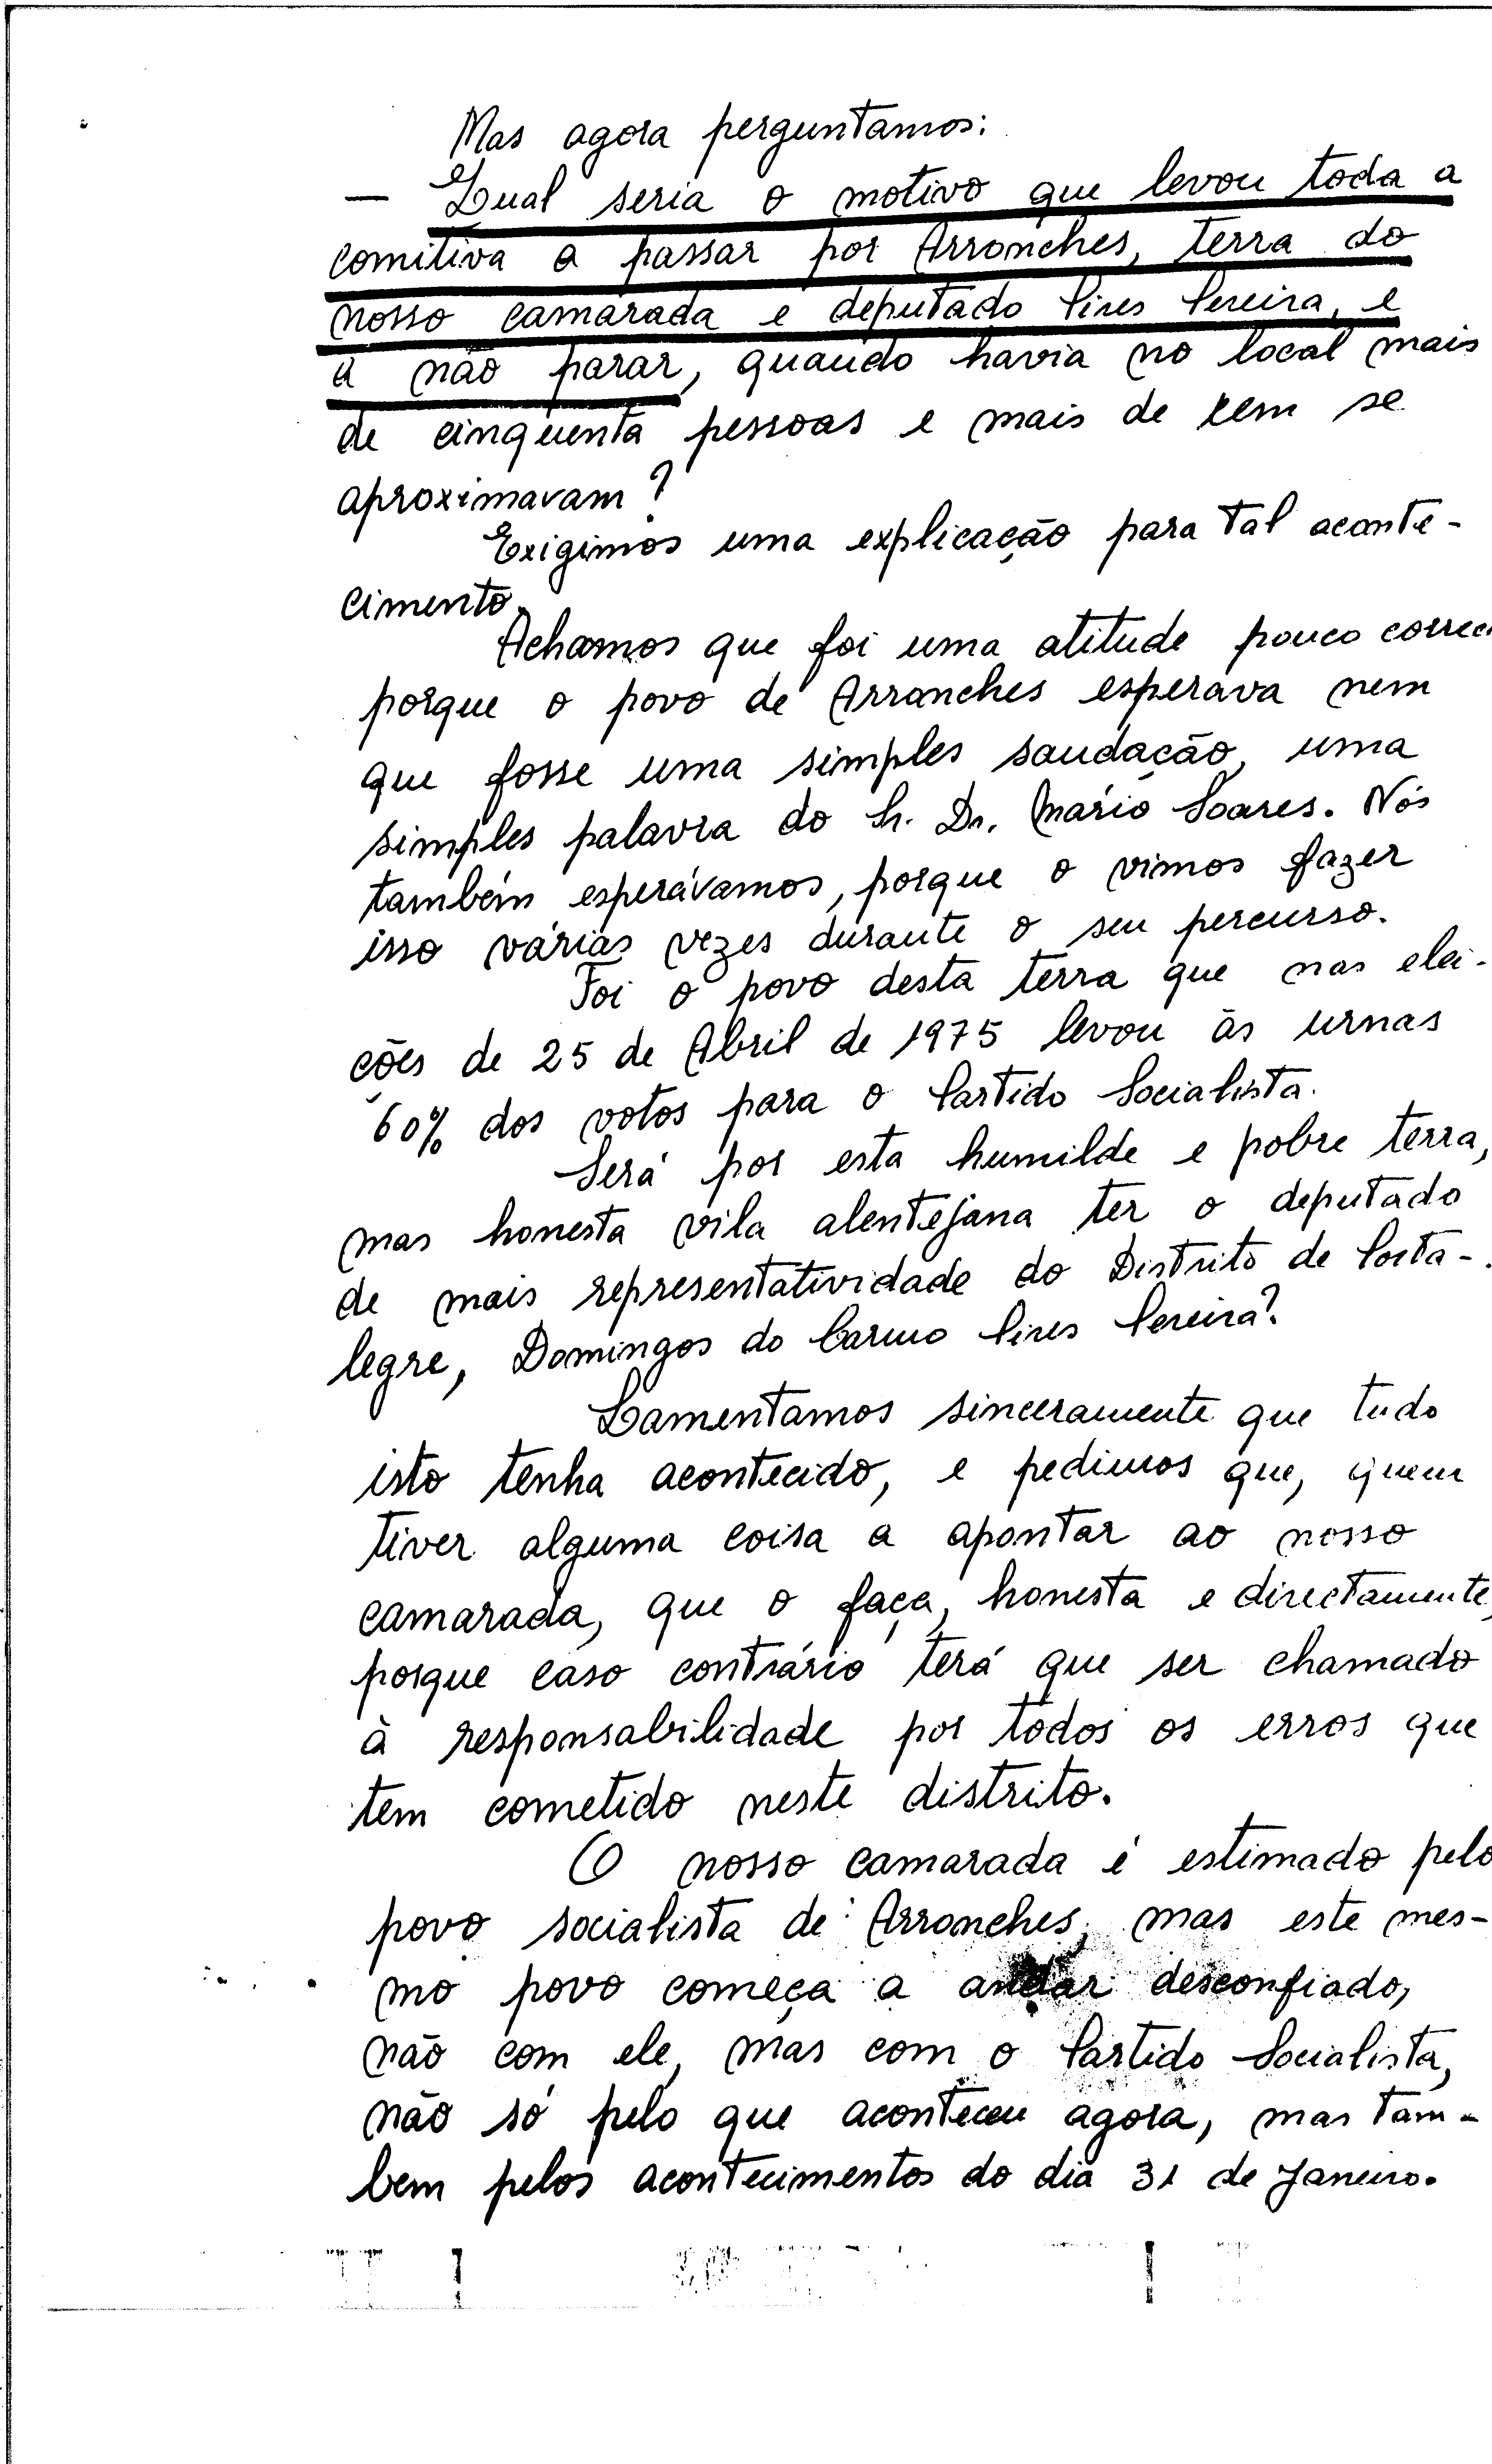 Mas agora perguntamos:
— Qual seria o motivo que levou toda a
comitiva a passar por Arronches, terra do
nosso camarada e deputado Pires Pereira, e
a não parar, quando havia no local mais
de cinquenta pessoas e mais de cem se
aproximavam?
Exigimos uma explicação para tal aconte-
cimento.
Achamos que foi uma atitude pouco correc
porque o povo de Arronches esperava nem
que fosse uma simples saudação, uma
simples palavra do Sr. Dr. Mário Soares. Nós
também esperávamos, porque o vimos fazer
isso várias vezes durante o seu percurso.
Foi o povo desta terra que nas elei-
ções de 25 de Abril de 1975 levou às urnas
60% dos votos para o Partido Socialista.
Será por esta humilde e pobre terra,
mas honesta vila alentejana ter o deputado
de mais representatividade do Distrito de Porta-
legre, Domingos do Carmo Pires Pereira?
Lamentamos sinceramente que tudo
isto tenha acontecido, e pedimos que, quem
tiver alguma coisa a apontar ao nosso
camarada, que o faça, honesta e directamente,
porque caso contrário terá que ser chamado
à responsabilidade por todos os erros que
tem cometido neste distrito.
O nosso camarada é estimado pelo
povo socialista de Arronches, mas este mes-
mo povo começa a andar desconfiado,
não com ele, mas com o Partido Socialista,
não só pelo que aconteceu agora, mas tam-
bem pelos acontecimentos do dia 31 de Janeiro.